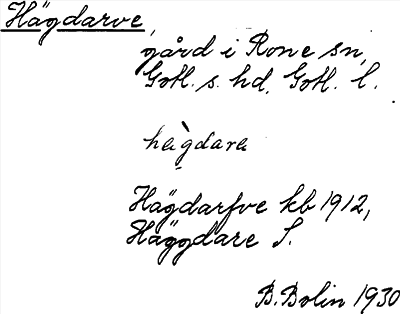 Hägdarve,
gård i Rone sn,
Gotl. s. hd, Gotl. l.
Hägdarfve kb 1912,
Häggdare S.
B. Bolin 1930